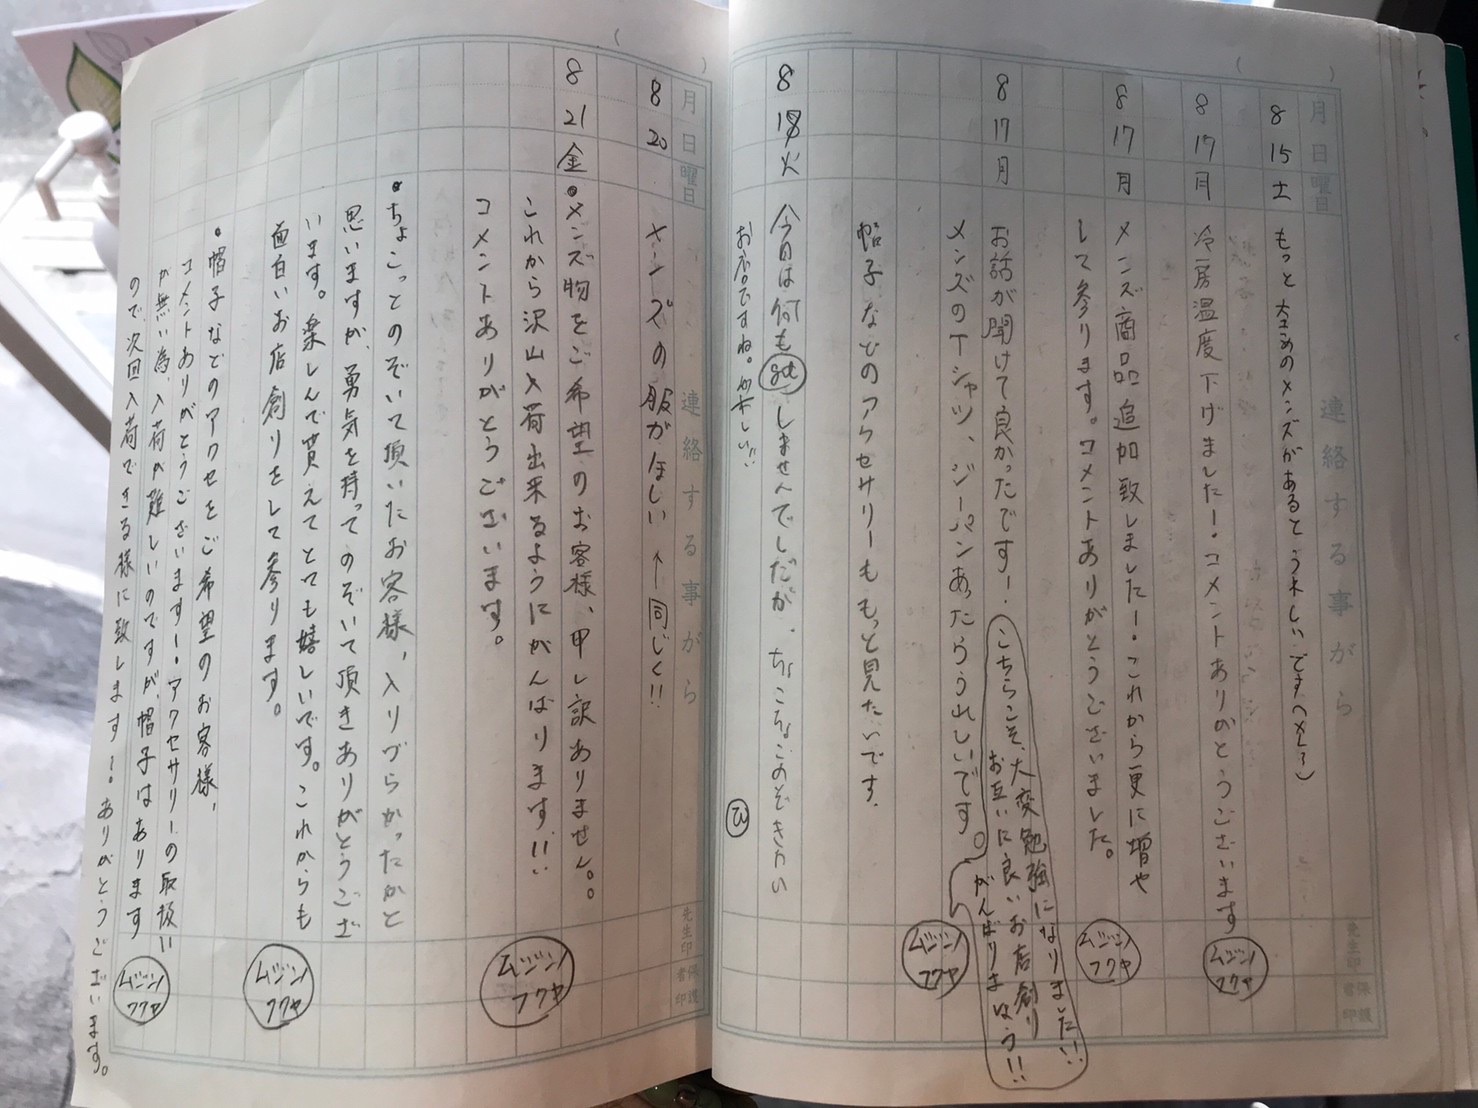 月 日 曜日 連絡する事がら 先生印 保護者印
8 15 土 もっと大きめのメンズがあるとうれしいです
8 17 月 冷房温度下げました！コメントありがとうございます
ムジン フクヤ
8 17 月 メンズ商品追加致しました！これから更に増や
して参ります。コメントありがとうございました。
ムジン フクヤ
8 17 月 お話が聞けて良かったです！
こちらこそ、大変勉強になりました!!
お互いに良いお店創り
がんばりましょう!!
メンズのTシャツ、ジーパンあったらうれしいです。
ムジン フクヤ
帽子などのアクセサリーももっと見たいです.
8 18 火 今日は何も get しませんでしだが、ちょこちょこのぞきたい
お店ですね。楽しい!! ひ
月 日 曜日 連絡する事がら 先生印 保護者印
8 20 メンズの服がほしい ↑ 同じく!!
8 21 金 ・メンズ物をご希望のお客様、申し訳ありません。。
これから沢山入荷出来るようにがんばります!!
コメントありがとうございます。
ムジン フクヤ
・ちょこっとのぞいて頂いたお客様、入りづらかったかと
思いますが、勇気を持ってのぞいて頂きありがとうござ
います。楽しんで貰えてとても嬉しいです。これからも
面白いお店創りをして参ります。
ムジン フクヤ
・帽子などのアクセをご希望のお客様、
コメントありがとうございます！アクセサリーの取扱い
が無い為、入荷が難しいのですが、帽子はあります
ので次回入荷できる様に致します！ありがとうございます。
ムジン フクヤ